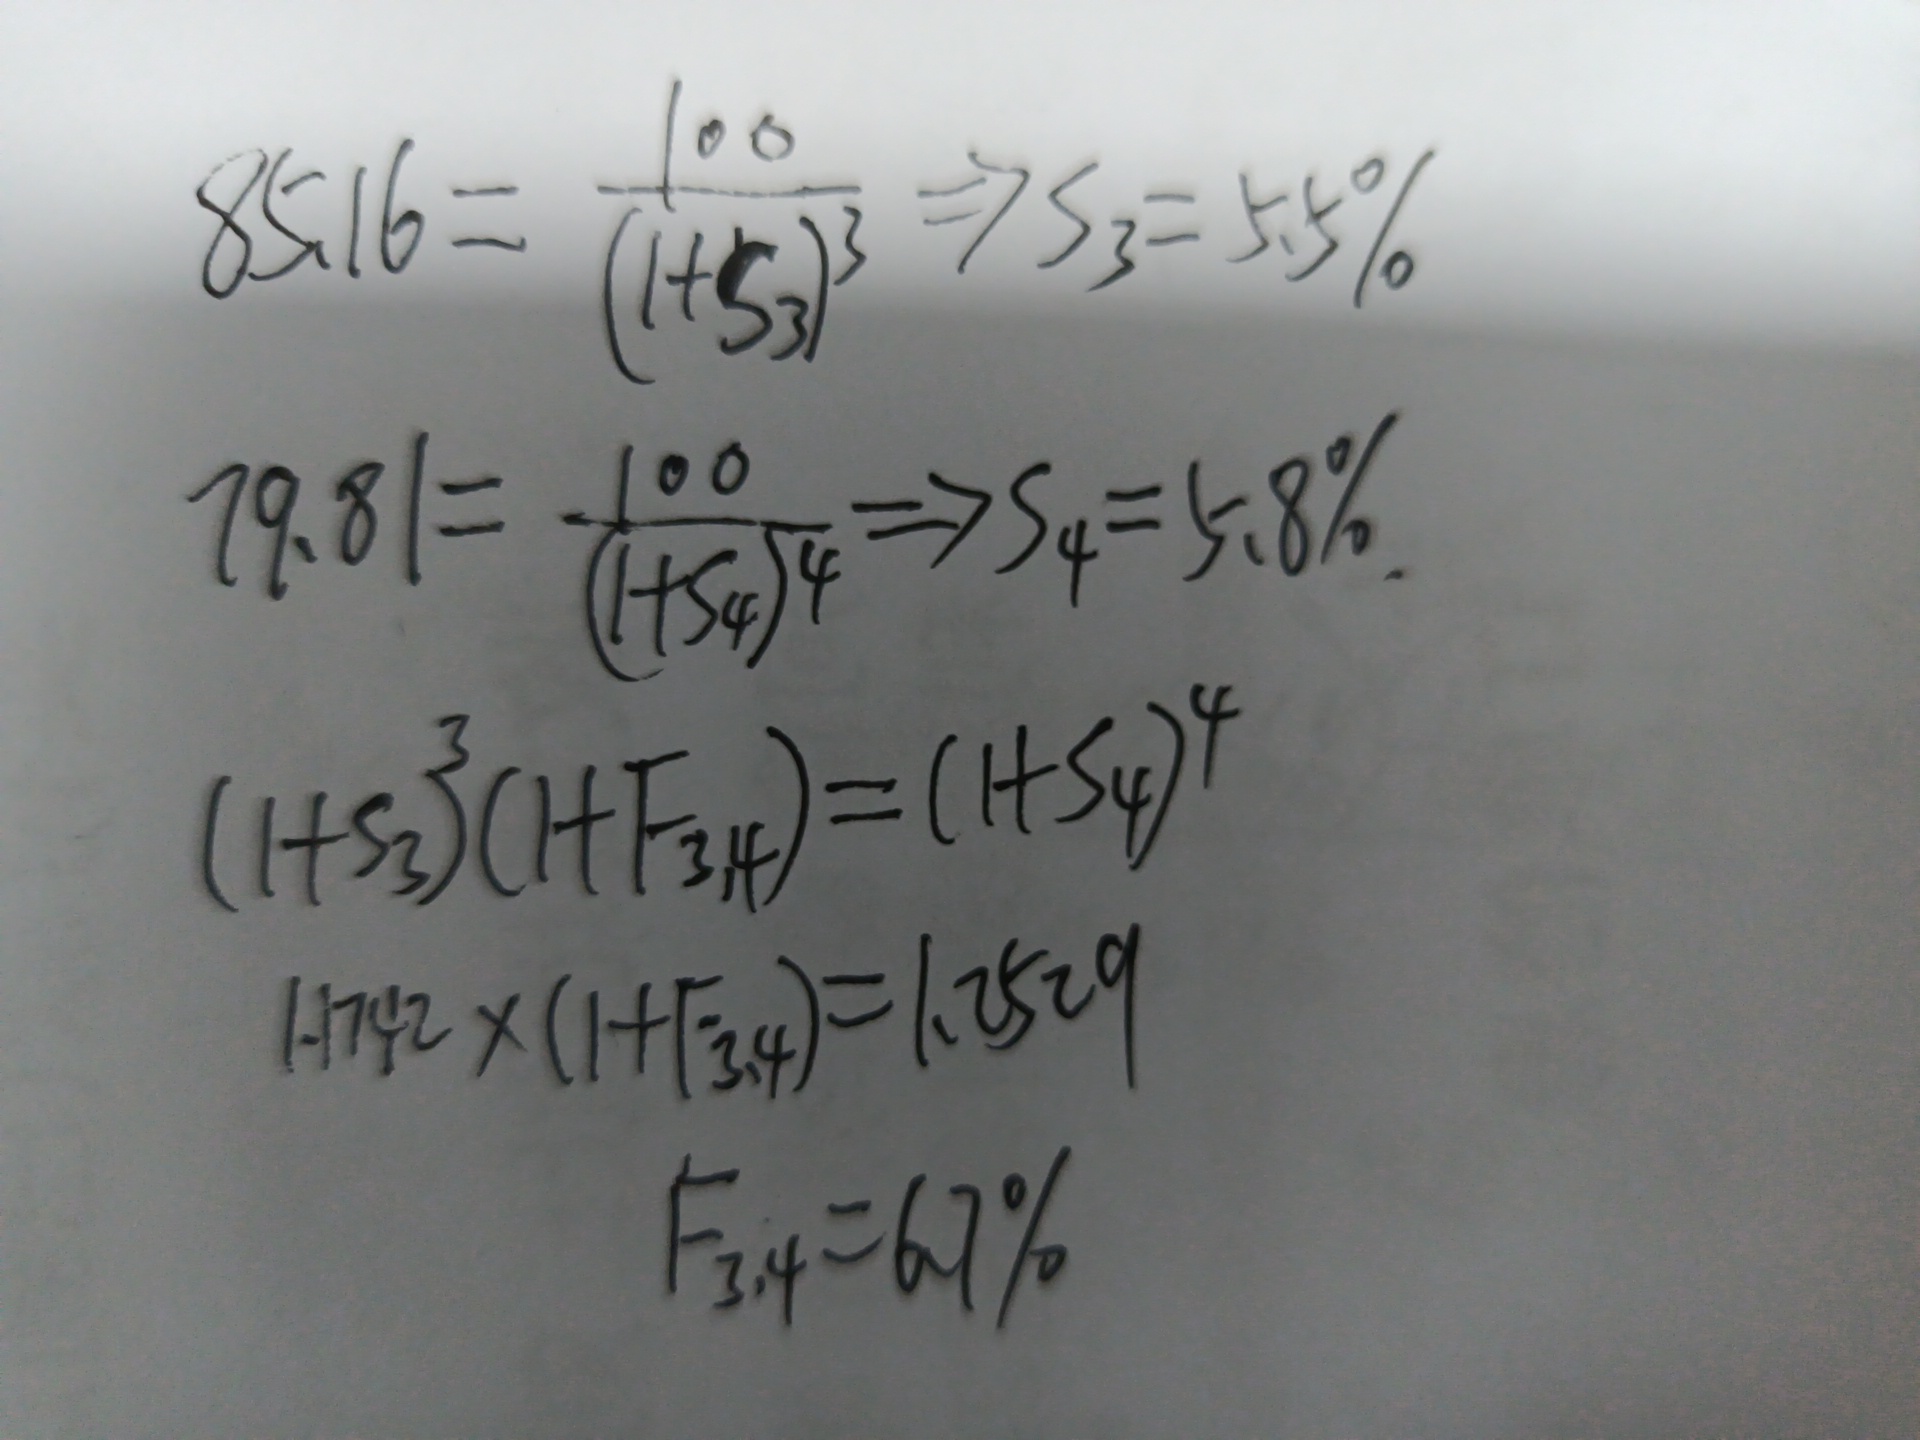 85.16 = 100/(1+S₃)³ ⇒ S₃ = 5.5%
79.81 = 100/(1+S₄)⁴ ⇒ S₄ = 5.8%.
(1+S₃)³(1+F₃,₄) = (1+S₄)⁴
1.1742 × (1+F₃,₄) = 1.2529
F₃,₄ = 6.7%